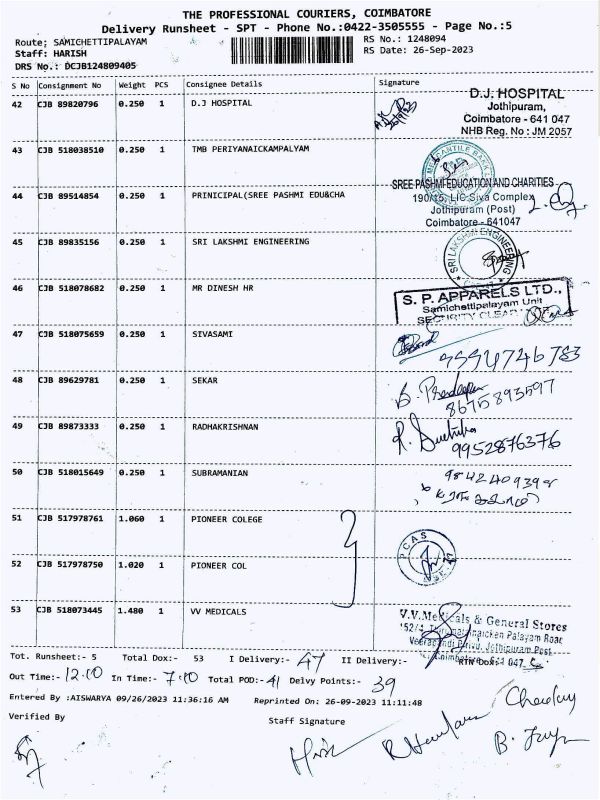 THE PROFESSIONAL COURIERS, COIMBATORE
Delivery Runsheet - SPT - Phone No.:0422-3505555 - Page No.:5
Route; SAMICHETTIPALAYAM
RS No.: 1248094
Staff: HARISH
RS Date: 26-Sep-2023
DRS No.: DCJB124809405
S No Consignment No Weight PCS Consignee Details Signature
42 CJB 89820796 0.250 1 D.J HOSPITAL
D.J. HOSPITAL
Jothipuram,
Coimbatore - 641 047
NHB Reg. No : JM 2057
43 CJB 518038510 0.250 1 TMB PERIYANAICKAMPALAYAM
44 CJB 89514854 0.250 1 PRINICIPAL(SREE PASHMI EDU&CHA
SREE PASHMI EDUCATION AND CHARITIES
190/15, LIC Siva Complex
Jothipuram (Post)
Coimbatore - 641047
45 CJB 89835156 0.250 1 SRI LAKSHMI ENGINEERING
SRI LAKSHMI ENGINEERING
46 CJB 518078682 0.250 1 MR DINESH HR
S. P. APPARELS LTD.,
Samichettipalayam Unit
SECURITY
47 CJB 518075659 0.250 1 SIVASAMI
48 CJB 89629781 0.250 1 SEKAR
8675893597
49 CJB 89873333 0.250 1 RADHAKRISHNAN
R. Suchitra
9952876376
50 CJB 518015649 0.250 1 SUBRAMANIAN
9842409398
51 CJB 517978761 1.060 1 PIONEER COLEGE
PCAS
52 CJB 517978750 1.020 1 PIONEER COL
53 CJB 518073445 1.480 1 VV MEDICALS
V.V.Medicals & General Stores
Palayam Road
Jothipuram Post
047
Tot. Runsheet:- 5 Total Dox:- 53 I Delivery:- 47 II Delivery:- RTN Dox:-
Out Time:- 12:00 In Time:- 7:00 Total POD:- 41 Delvy Points:- 39
Entered By :AISWARYA 09/26/2023 11:36:16 AM Reprinted On: 26-09-2023 11:11:48
Verified By
Staff Signature